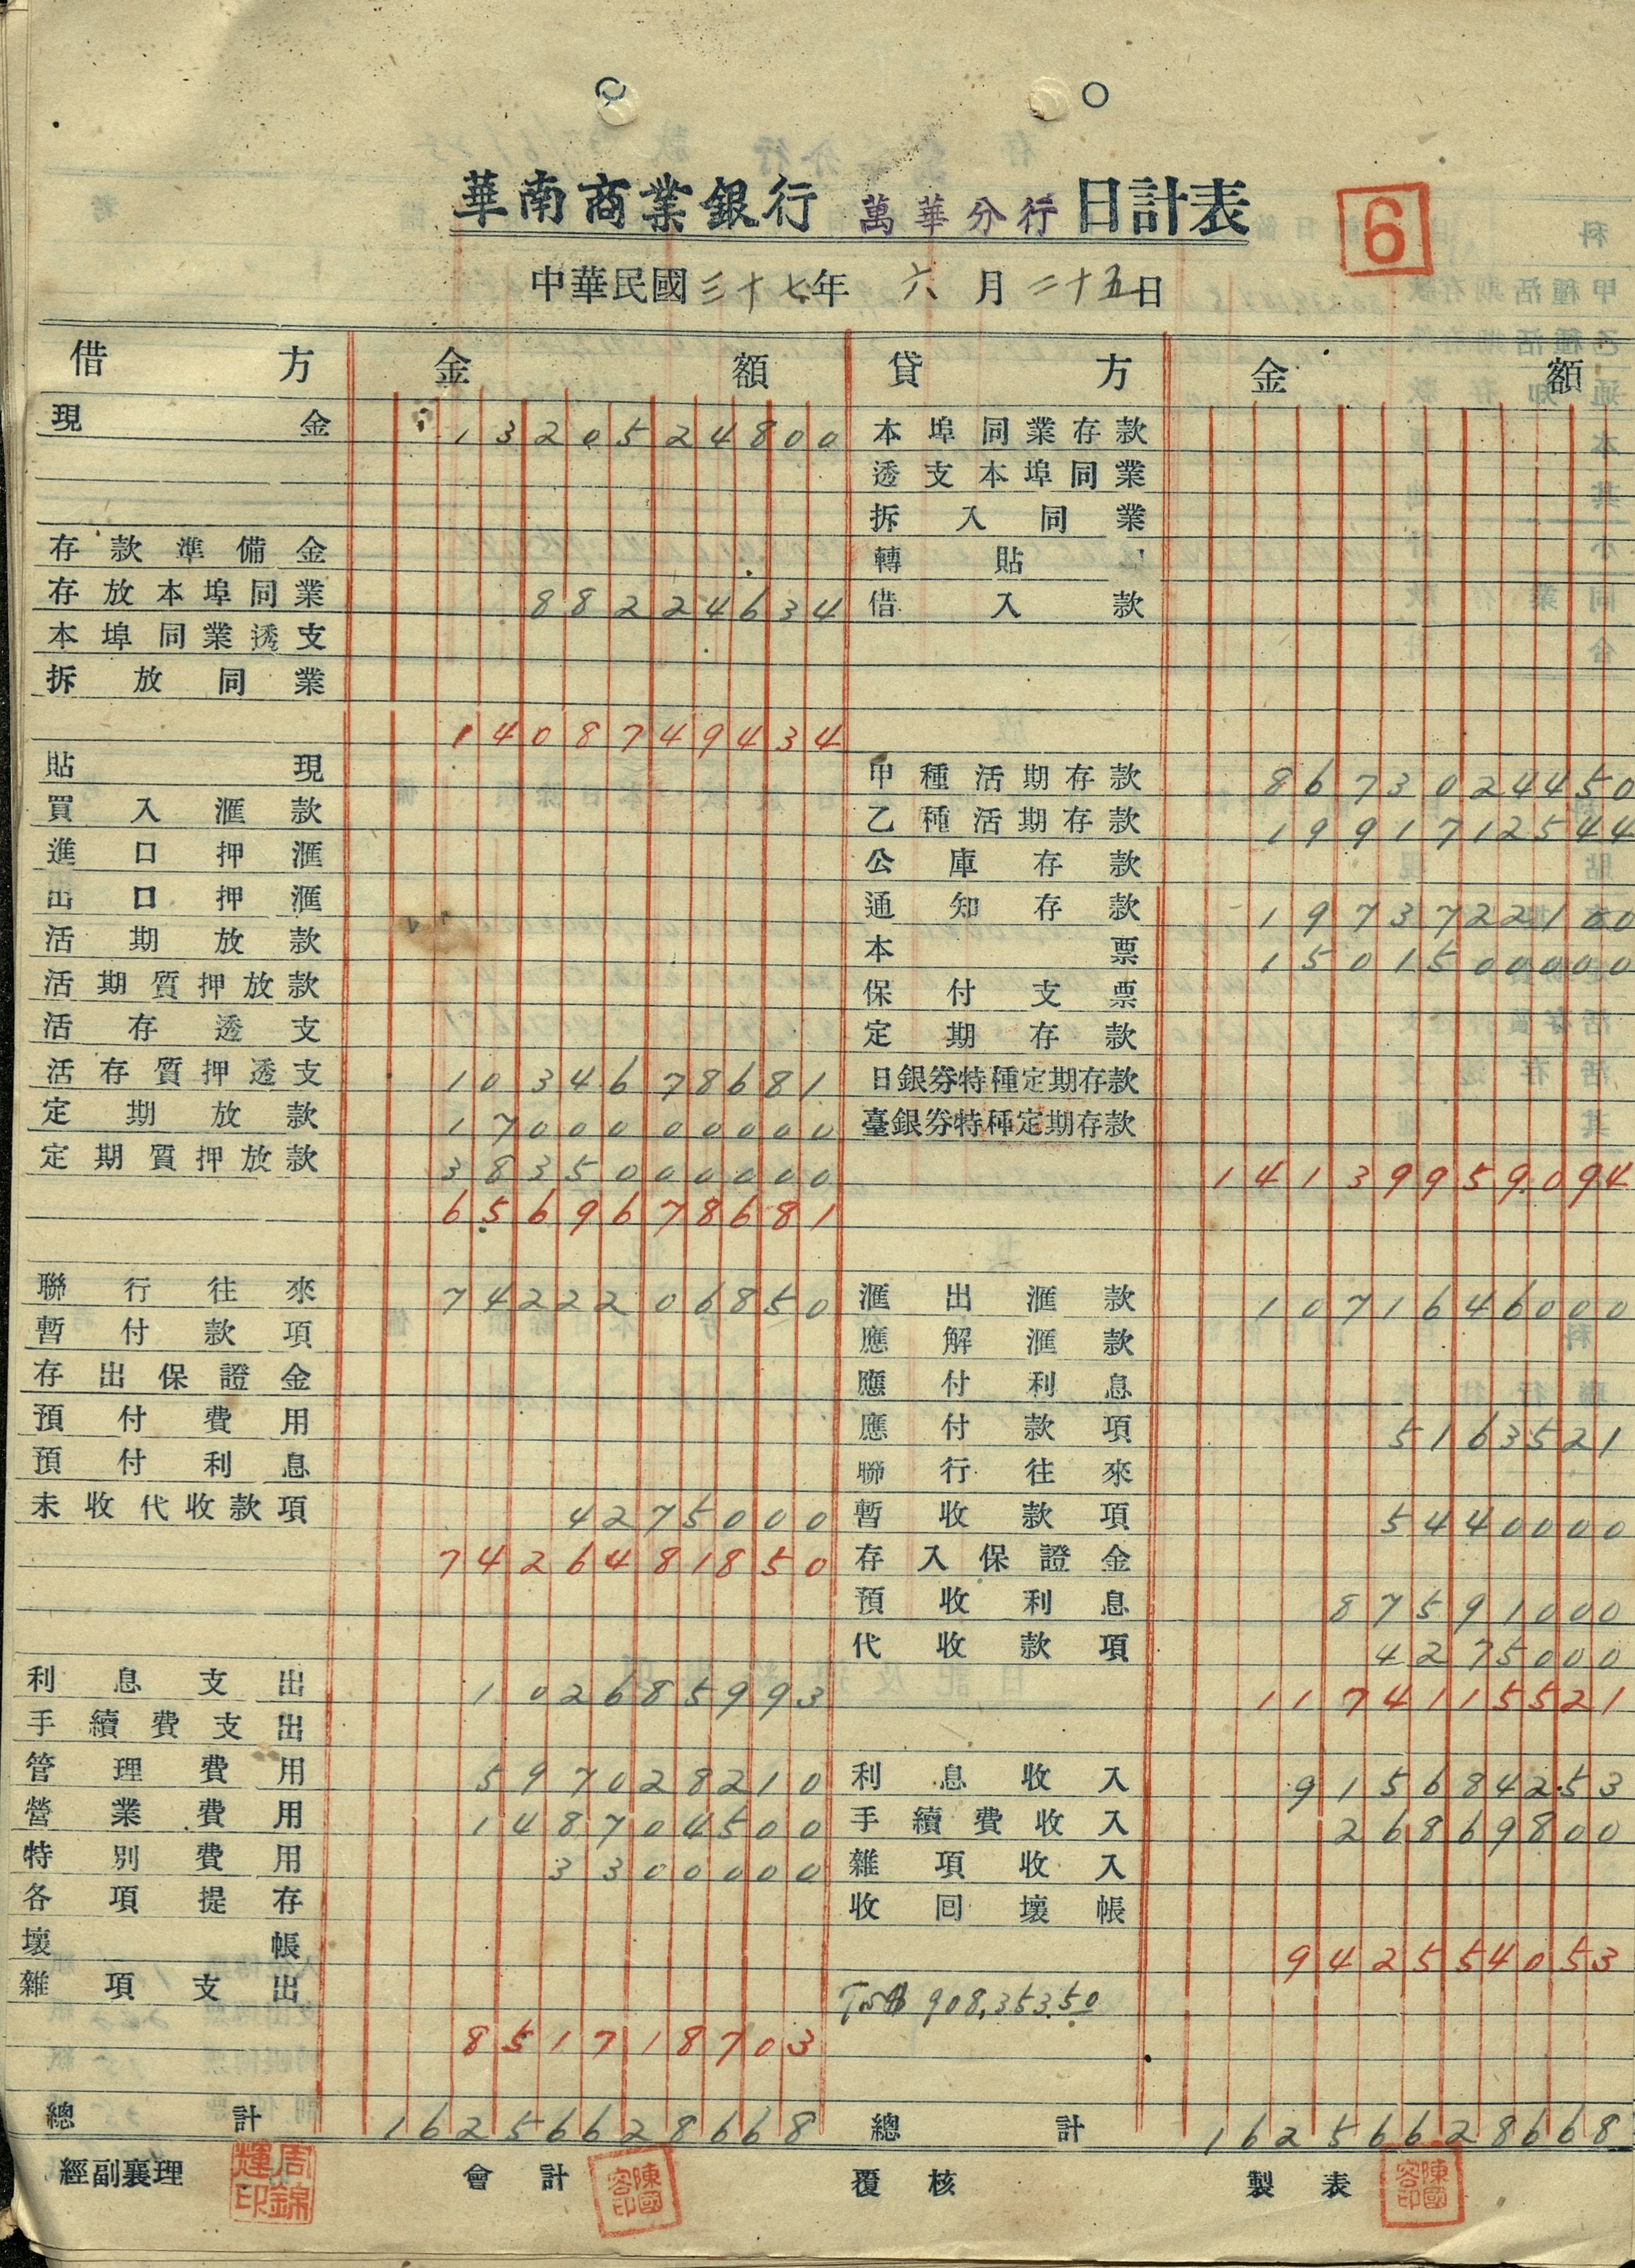 華南商業銀行 萬華分行 日計表 6
中華民國三十七年 六月二十五日
借方 金額 貸方 金額
現金 1320524800 本埠同業存款
透支本埠同業
拆入同業
存款準備金 轉貼
存放本埠同業 88224634 借入款
本埠同業透支
拆放同業
1408749434
貼現 甲種活期存款 8673024450
買入滙款 乙種活期存款 1991712544
進口押滙 公庫存款
出口押滙 通知存款 1973722100
活期放款 本票 1501500000
活期質押放款 保付支票
活存透支 定期存款
活存質押透支 1034678681 日銀券特種定期存款
定期放款 1700000000 臺銀券特種定期存款
定期質押放款 3835000000 14139959094
6569678681
聯行往來 7422206850 滙出滙款 1071646000
暫付款項 應解滙款
存出保證金 應付利息
預付費用 應付款項 5163521
預付利息 聯行往來
未收代收款項 4275000 暫收款項 5440000
7426481850 存入保證金
預收利息 87591000
代收款項 4275000
利息支出 102685993 1174115521
手續費支出
管理費用 597028210 利息收入 915684253
營業費用 148704500 手續費收入 26869800
特別費用 3300000 雜項收入
各項提存 收回壞帳
壞帳 942554053
雜項支出 908,353.50
851718703
總計 16256628668 總計 16256628668
經副襄理 周錦輝印 會計 陳國容印 覆核 製表 陳國容印